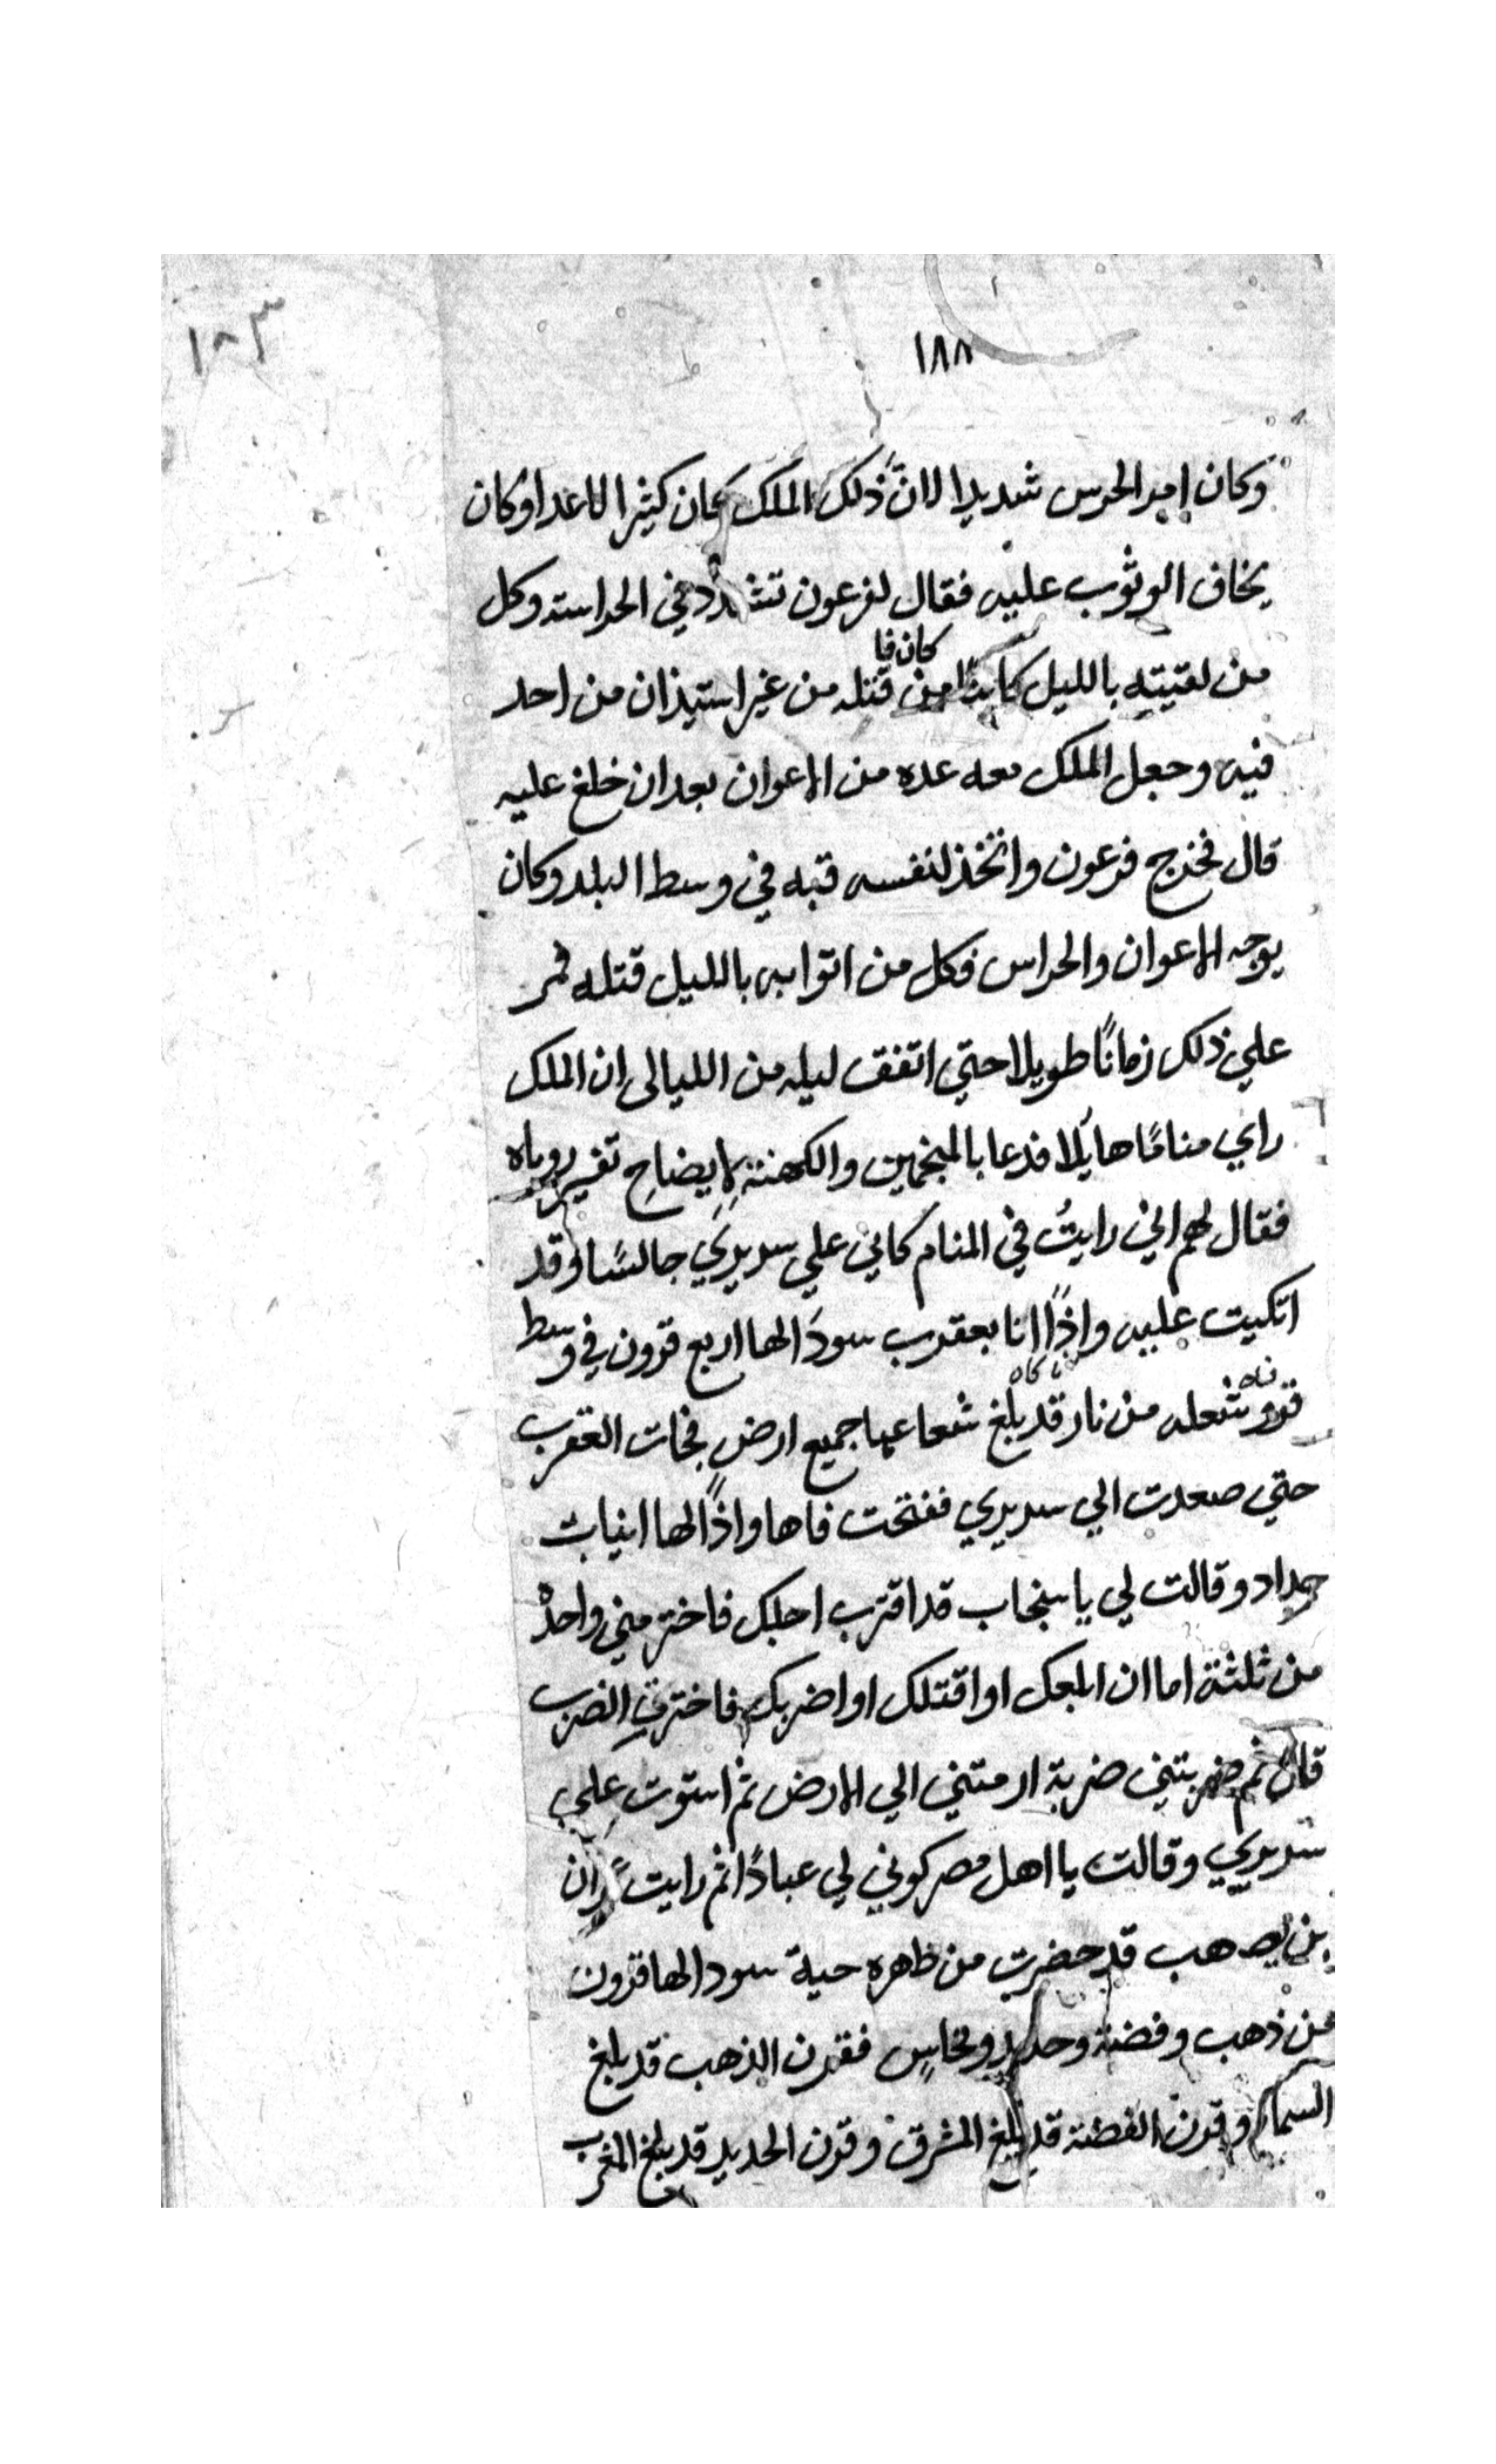 ١٨٣
١٨٨
وكان امير الحرس شديدا لان ذلك الملك كان كثير الاعدا وكان
يخاف الوثوب عليه فقال لفرعون تشدد في الحراسه وكل
من لقيته بالليل كاينًا من كان فا قتله من غير استيذان من احد
فيه وجعل الملك معه عده من الاعوان بعد ان خلع عليه
قال فخرج فرعون واتخذ لنفسه قبه في وسط البلد وكان
يوجه الاعوان والحراس فكل من اتوا به بالليل قتله فمر
علي ذلك زمانًا طويلا حتي اتفق ليله من الليالى ان الملك
راي منامًا هايلًا فدعا بالمنجمين والكهنة لايضاح تفسير روياه
فقال لهم اني رايتُ في المنام كاني علي سريري جالسًا وقد
اتكيت عليه واذًا انا بعقرب سودا لها اربع قرون في وسط
قرونها شعله من نار قد بلغ شعاعها جميع ارض فجات العقرب
حتي صعدت الي سريري ففتحت فاها واذًا لها انياب
حداد وقالت لي يا سنجاب قد اقترب اجلك فاختر مني واحدة
من ثلثة اما ان ابلعك او اقتلك او اضربك فاخترت الضرب
قال ثم ضربتني ضربة ارمتني الي الارض ثم استوت علي
سريري وقالت يا اهل مصر كوني لي عبادًا ثم رايت ان
بن يصهب قد حضرت من ظهره حية سودا لها قرون
من ذهب وفضة وحديد ونحاس فقرن الذهب قد بلغ
السما وقرن الفضة قد بلغ المشرق وقرن الحديد قد بلغ المغرب